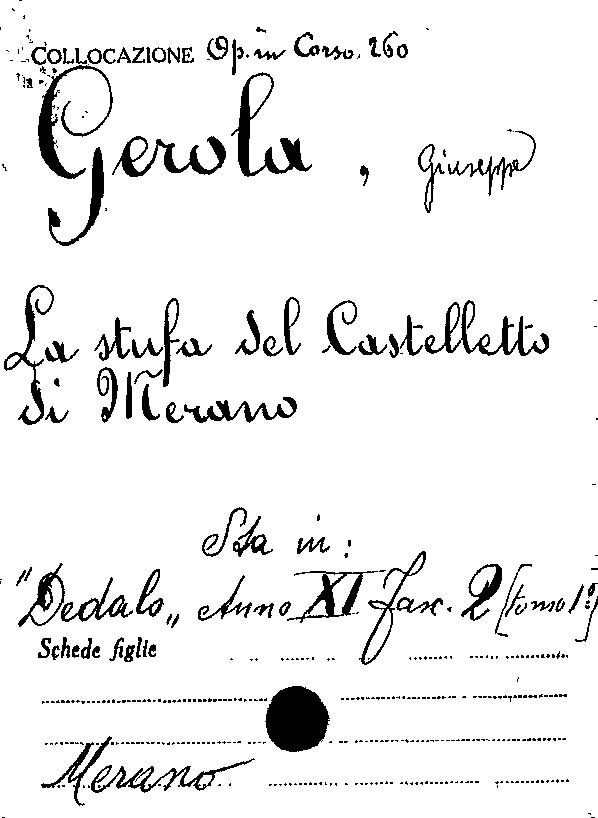 COLLOCAZIONE Op. in Corso. 260
Gerola, Giuseppe
La stufa del Castelletto
di Merano
Sta in:
"Dedalo„ Anno XI Fasc. 2 [tomo 1º]
Schede figlie
Merano